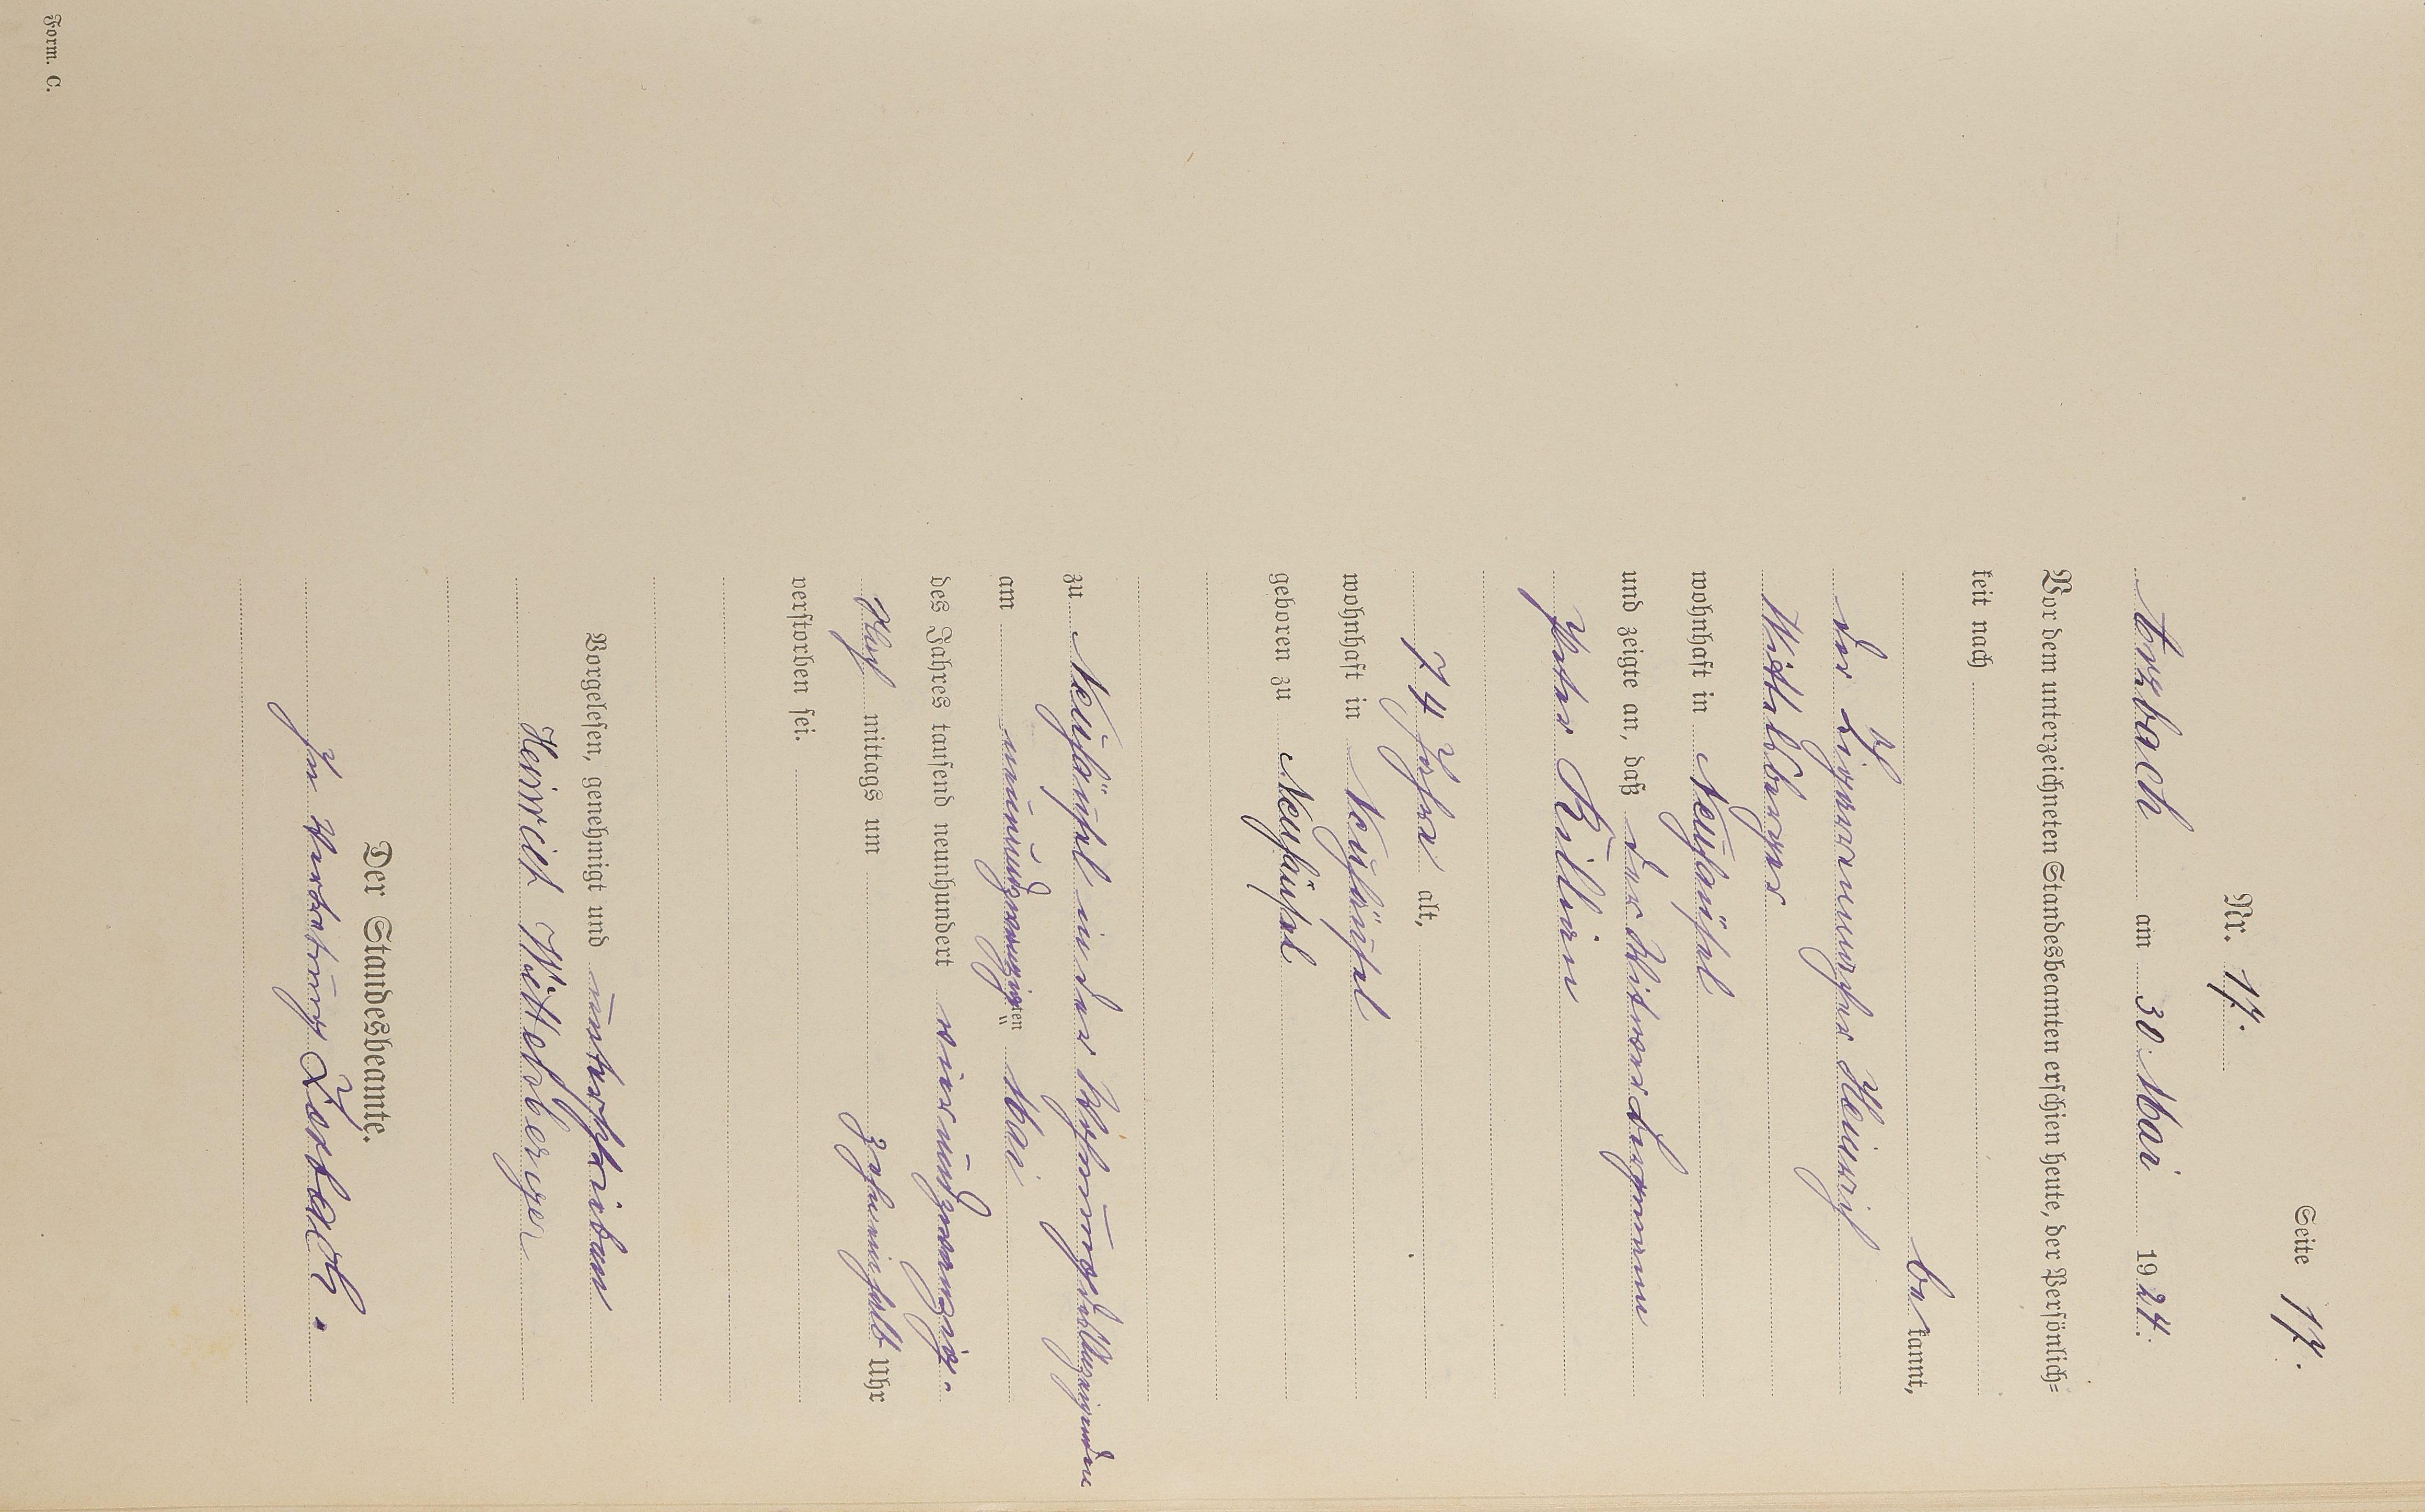 Seite 17.
Nr. 17.
Arzbach am 30. Mai 1924.
Vor dem unterzeichneten Standesbeamten erschien heute, der Persönlich=
keit nach
be kannt,
der Zigarrenmacher Heinrich
Wittelsberger
wohnhaft in Neuhäusel
und zeigte an, daß der Witwer Bergmann
Peter Killian
74 Jahre alt,
wohnhaft in Neuhäusel
geboren zu Neuhäusel
zu Neuhäusel in der Wohnung des Anzeigenden
am neunundzwanzigsten Mai
des Jahres tausend neunhundert vierundzwanzig.
Nach mittags um zehneinhalb Uhr
verstorben sei.
Vorgelesen, genehmigt und unterschrieben
Heinrich Wittelsberger
Der Standesbeamte.
In Vertretung
Form. C.